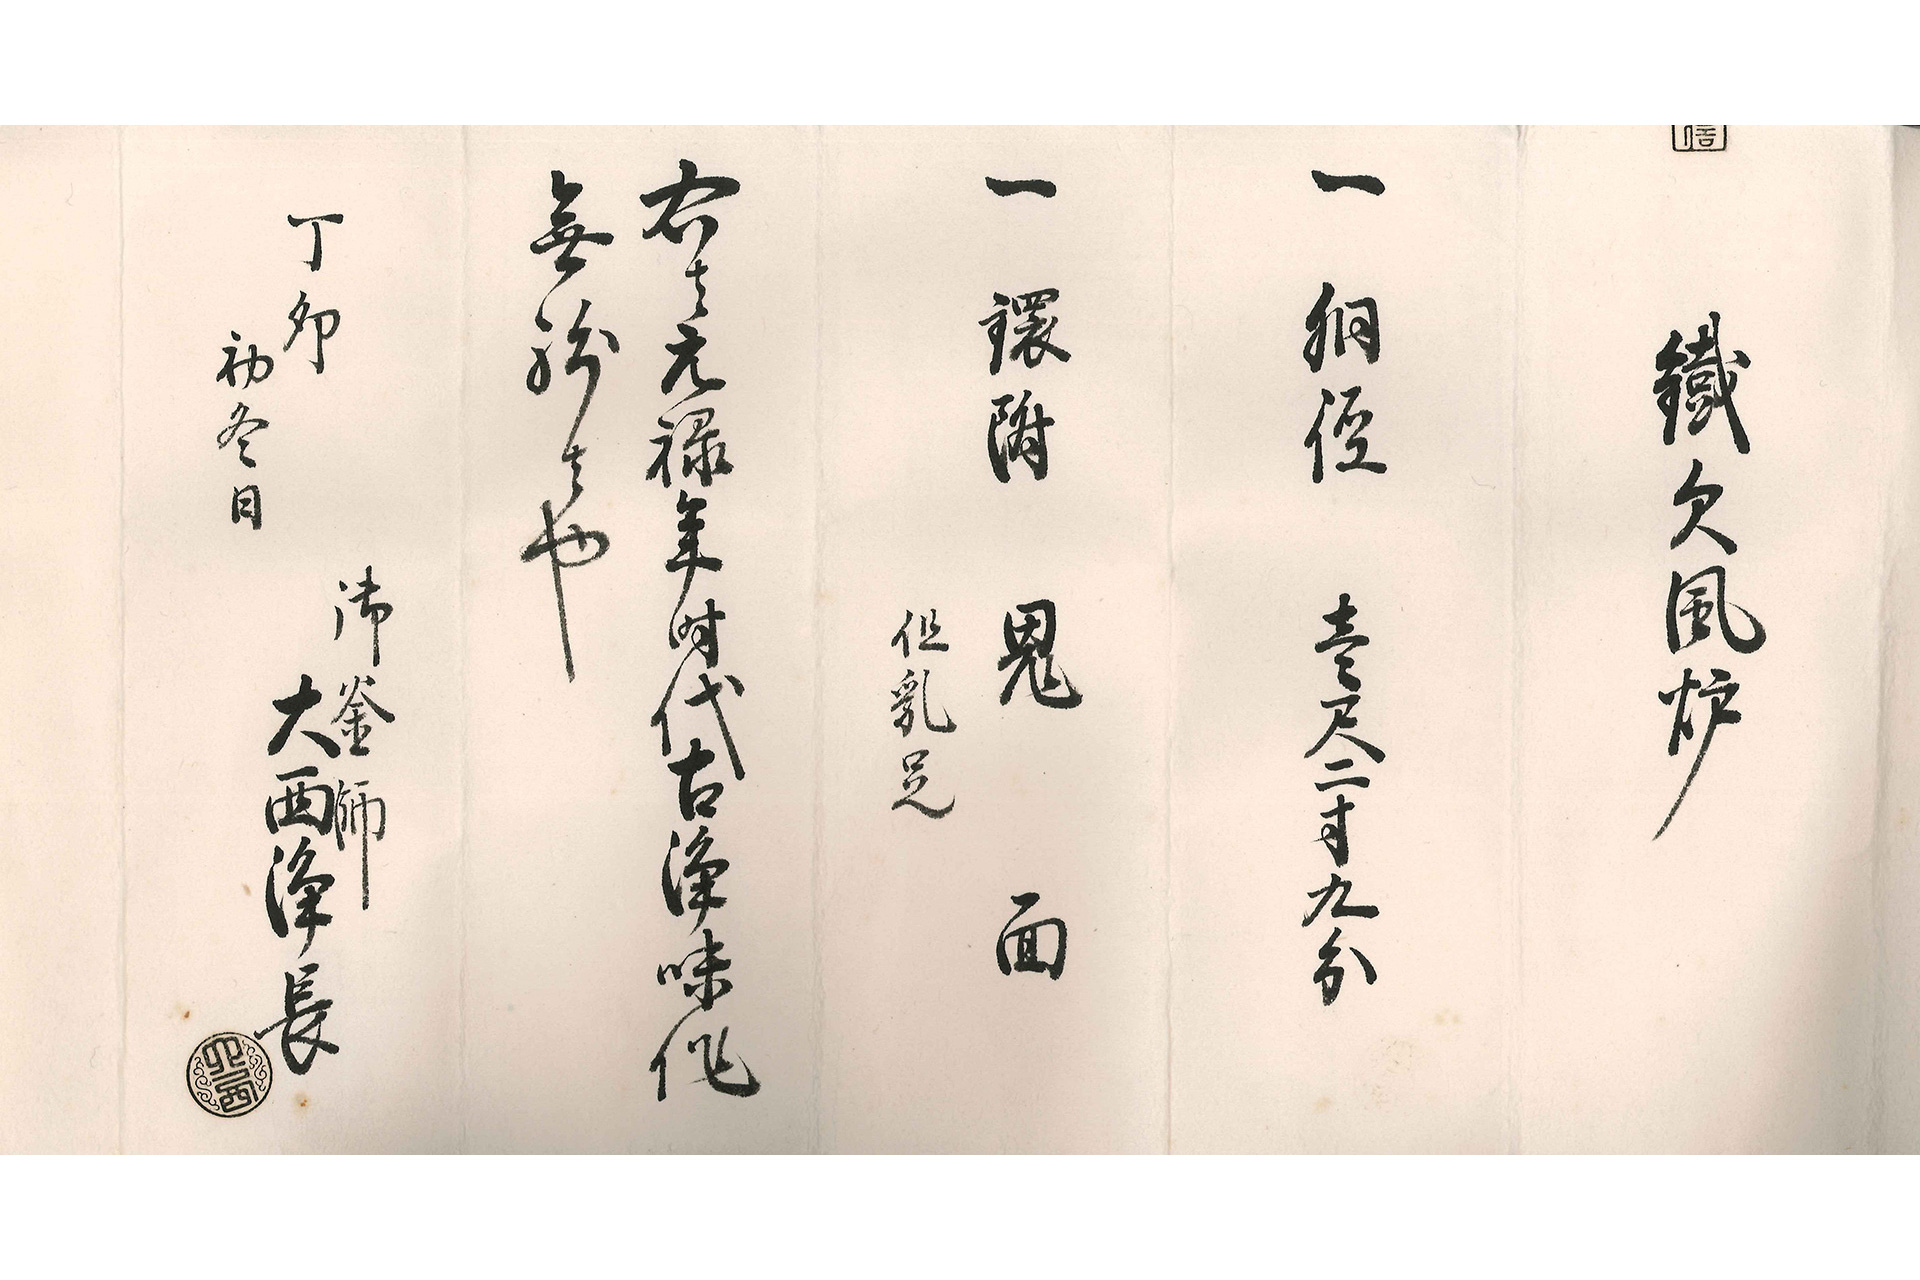 鐵欠風炉
一 胴径 壹尺二寸九分
一 鐶附 鬼面
但乳足
右者元禄年時代古浄味作
無紛者也
丁卯
初冬日
御釜師
大西浄長
大西